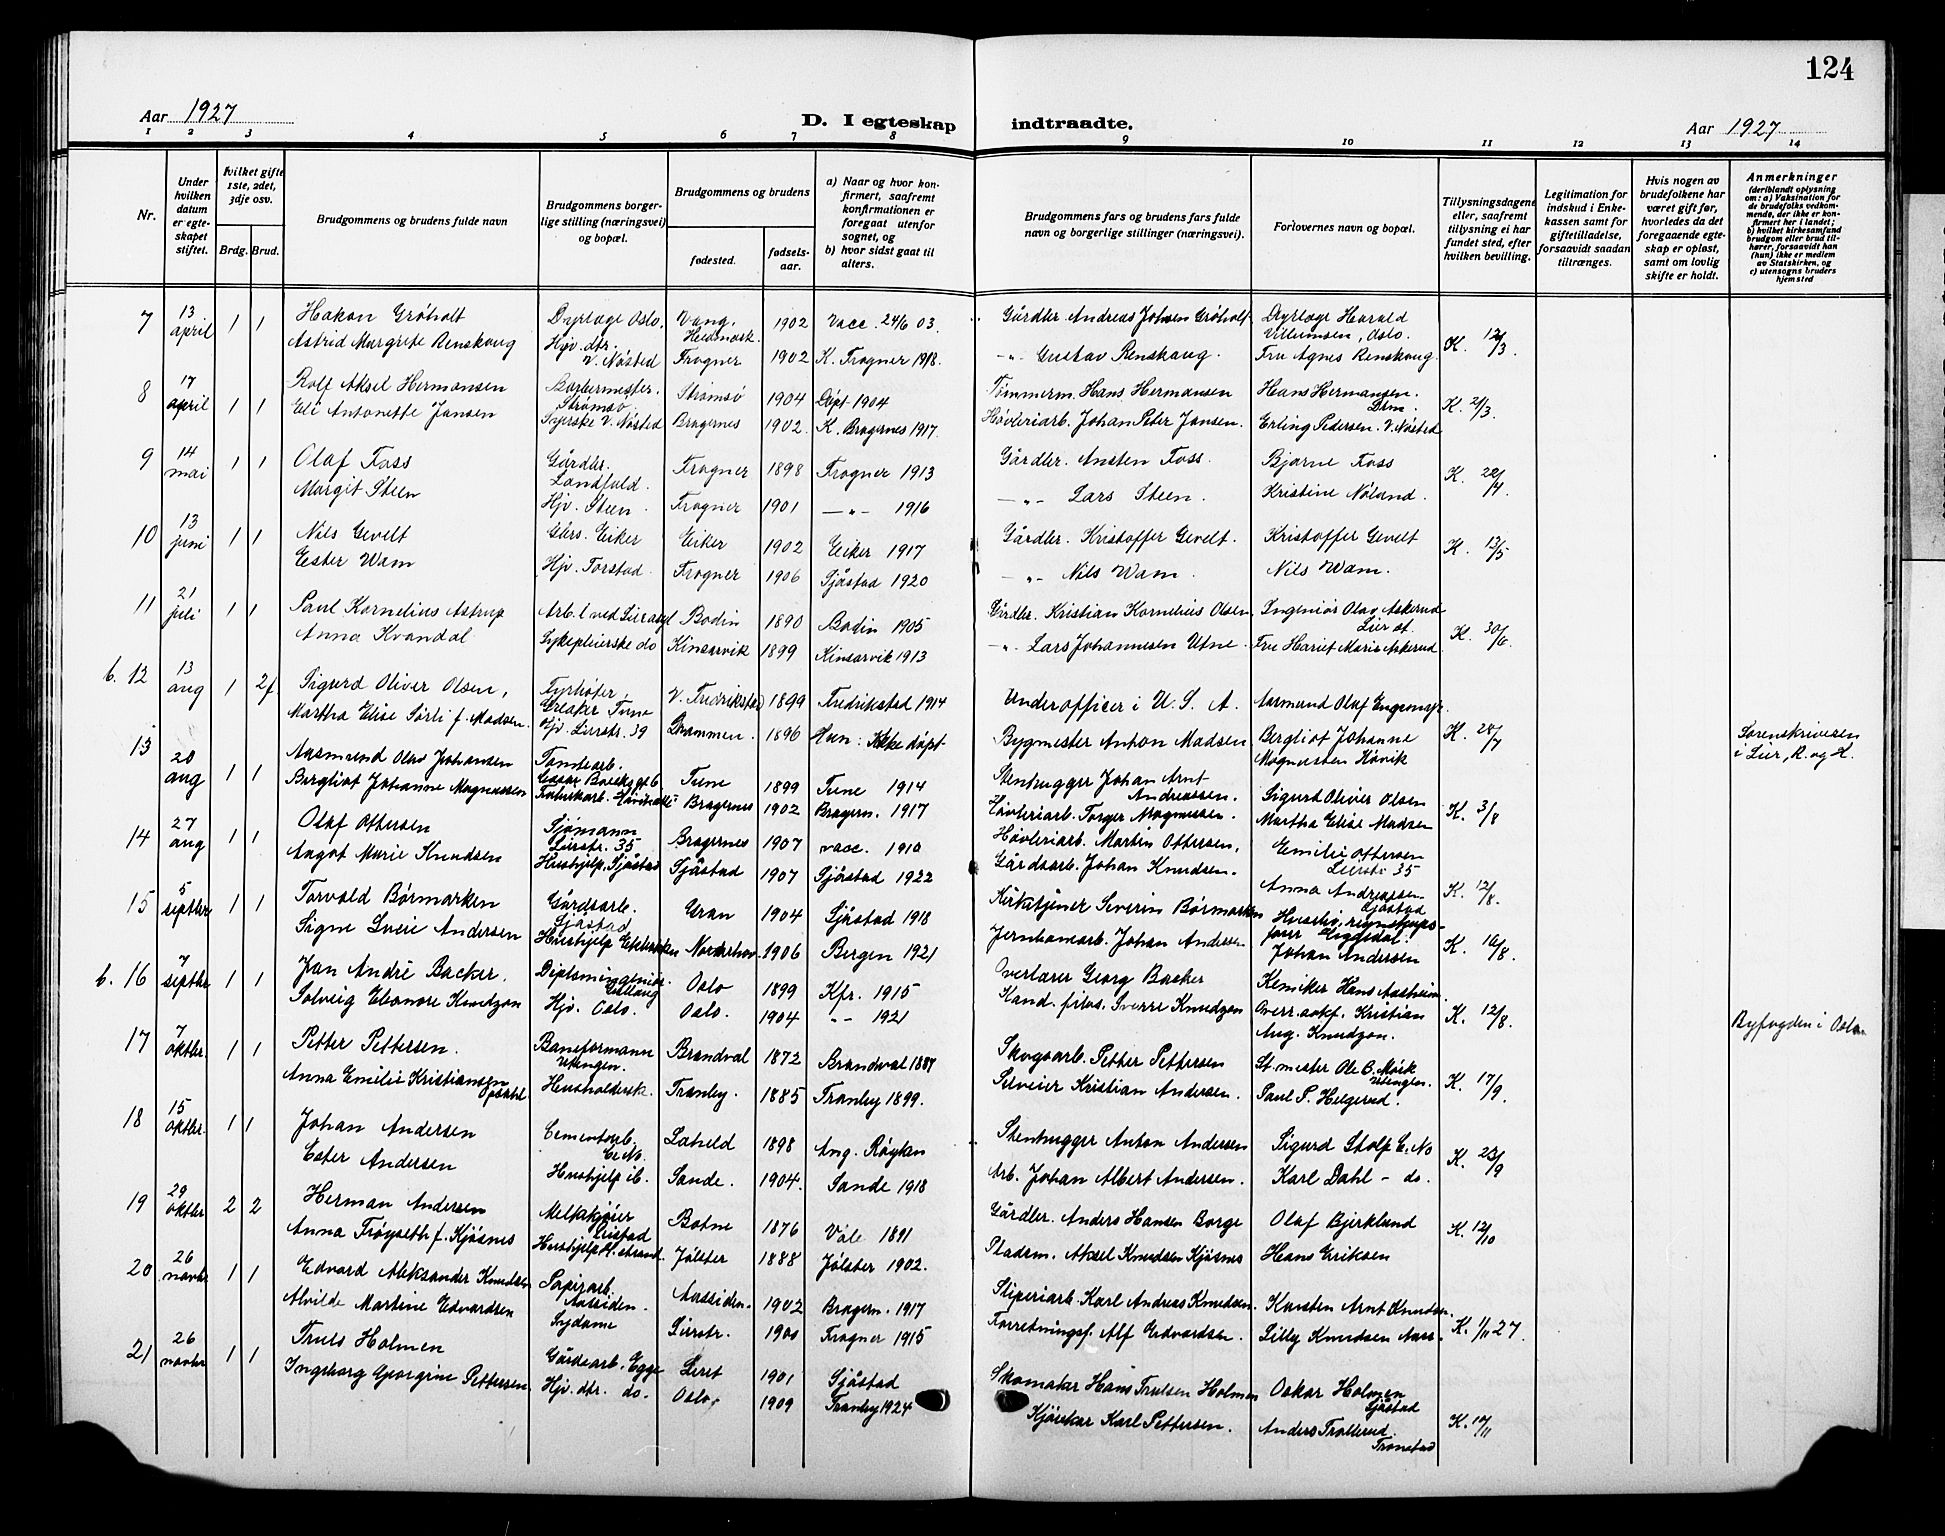 124
Aar 1927
D. I egteskap indtraadte.
Aar 1927
1 2 3 4 5 6 7 8 9 10 11 12 13 14
Nr.
Under hvilken datum er egteskapet stiftet.
hvilket gifte 1ste, 2det, 3dje osv.
Brdg. Brud.
Brudgommens og brudens fulde navn
Brudgommens borgerlige stilling (næringsvei) og bopæl.
Brudgommens og brudens
fødested.
fødselsaar.
a) Naar og hvor konfirmert, saafremt konfirmationen er foregaat utenfor sognet, og
b) hvor sidst gaat til alters.
Brudgommens fars og brudens fars fulde navn og borgerlige stillinger (næringsvei).
Forlovernes navn og bopæl.
Tillysningsdagene eller, saafremt tillysning ei har fundet sted, efter hvilken bevilling.
Legitimation for indskud i Enkekassen samt for giftetilladelse, forsaavidt saadan tiltrænges.
Hvis nogen av brudefolkene har været gift før, hvorledes da det foregaaende egteskap er opløst, samt om lovlig skifte er holdt.
Anmerkninger (deriblandt oplysning om: a) Vaksination for de brudefolks vedkommende, der ikke er konfirmert her i landet; b) hvilket kirkesamfund brudgom eller brud tilhører, forsaavidt han (hun) ikke er medlem av Statskirken, og c) utensogns bruders hjemsted
7 13 april 1 1 Hakon Grøholt Dyrlæge Oslo. Vang, Hedmark. 1902 Vacc. 24/6 03. Gårdbr. Andreas Johsen Grøholt Dyrlæge Harald Villumsen, Oslo. K. 12/3.
Astrid Margrete Renskaug Hjv. dtr. V. Nøsted Frogner 1902 K. Frogner 1918. -"- Gustav Renskaug. Fru Agnes Renskaug.
8 17 april 1 1 Rolf Aksel Hermansen Barbermester. Strømsø Strømsø 1904 Døpt 1904 Tømmerm. Hans Hermansen Hans Hermansen. Drm. K. 21/3.
Eli Antonette Jansen Syerske V. Nøsted Bragernes 1902. K. Bragernes 1917. Høvleriarb. Johan Peter Jansen. Erling Pedersen. V. Nøsted
9 14 mai 1 1 Olaf Foss Gårdbr. Landfald. Frogner 1898 Frogner 1913 Gårdbr. Ansten Foss. Bjarne Foss K. 28/4.
Margit Steen Hjv. Steen. Frogner 1901 -"- 1916 -"- Lars Steen. Kristine Nøland.
10 13 juni 1 1 Nils Gevelt Gårs. Eiker Eiker 1902 Eiker 1917 Gårdbr. Kristoffer Gevelt. Kristoffer Gevelt K. 13/5
Ester Wam Hjv. Torstad. Frogner 1906 Sjåstad 1920 -"- Nils Wam. Nils Wam.
11 21 juli 1 1 Paul Kornelius Astrup Arb. l ved Lier asyl Bodin 1890 Bodin 1905 Gårdbr. Kristian Kornelius Olsen Ingeniør Olav Askerud Lier st. K. 30/6.
Anna Kvandal Sykepleierske do Kinsarvik 1899 Kinsarvik 1913 -"- Lars Johannesen Utne. Fru Hariet Marie Askerud
b. 12 13 aug 1 2f Sigurd Oliver Olsen, Fyrbøter, Greaker Tune V. Fredrikstad 1899 Fredrikstad 1914 Underofficer i U. S. A. Aasmund Olaf
Martha Elise Sørli f. Madsen. Hjv. Lierstr. 39 Drammen. 1896 Hun: Ikke døpt Bygmester Anton Madsen Bergliot Johanne Magnussen Høvik K. 28/7 Sorenskriveren i Lier, R. og H.
13 20 aug 1 1 Aasmund Olav Johansen Tomtearb. Tune 1899 Tune 1914 Stenhugger Johan Arnt Andreassen. Sigurd Oliver Olsen K. 3/8
Bergliot Johanne Magnussen Fabrikarb. Bragernes 1902 Bragern. 1917 Høvleriarb. Torger Magnussen. Martha Elise Madsen
14 27 aug 1 1 Olaf Ottersen Sjømann Lierstr. 35 Bragernes 1907 vacc. 1910 Høvleriarb. Martin Ottersen, Emilie Ottersen Lierstr. 35 K. 12/8.
Angot Marie Knudsen Hushjelp. Sjåstad Sjåstad 1907 Sjåstad 1922 Gårdsarb. Johan Knudsen. Anna Andreassen Sjåstad
15 5 septbr 1 1 Torvald Børmarken Gårdsarb. Sjåstad Gran 1904 Sjåstad 1918 Kirketjener Severin Børmarken K. 16/8.
Signe Lveie Andersen Hushjelp Norderhov. 1906 Bergen 1921 Jernbanearb. Johan Andersen Johan Andersen
b. 16 7 septbr 1 1 Jan André Backer. Diplomingeniør Oslo 1899 Kfr. 1915 Overlærer Georg Backer Kemiker Hans Aasheim K. 12/8.
Solveig Eleonore Knudzon Hjv. Oslo. Oslo. 1904 -"- 1921 Kand. filos. Sverre Knudzon Overr.sakf. Kristian Aug. Knudzon. Byfogden i Oslo
17 7 oktbr. 1 1 Petter Pettersen. Baneformann Brandval 1872 Brandval 1887 Skogsarb. Petter Pettersen St.mester Ole B. Mørk K. 17/9.
Anna Emilie Kristiansen Opsahl Husholdersk. Tranby. 1885 Tranby 1899. Selveier Kristian Andersen. Paul P. Helgerud.
18 15 oktbr. 1 1 Johan Andersen Cementarb. Laheld 1898 Ang. Røyken Stenhugger Anton Andersen Sigurd Stolp K. 23/9
Ester Andersen Hushjelp ib. Sande. 1904. Sande 1918 Arb. Johan Albert Andersen. Karl Dahl - do.
19 29 oktbr 2 2 Herman Andersen Melkekjører Botne 1876 Våle 1891 Gårdbr. Anders Hansen Borge Olaf Bjerklund K. 12/10
Anna Frøyseth f. Kjøsnes Hushjelp H.strand. Jølster 1888 Jølster 1902. Pladsm. Aksel Knudsen Kjøsnes Hans Eriksen
20 26 novbr 1 1 Edvard Aleksander Knudsen Papirarb. Aassiden. Aassiden. 1902 Bragern. 1917 Sliperiarb. Karl Andreas Knudsen. Karsten Arnt Knudsen. K. 1/11 27.
Alvilde Martine Edvardsen Sydame Lierstr. 1900 Frogner 1915 Forretningsf. Alf Edvardsen. Lilly Knudsen Aass.
21 26 novbr 1 1 Truls Holmen Gårdearb. Egge Lier 1901 Sjåstad Skomaker Hans Trulsen Holmen Oskar Holmen Sjåstad K. 14/11
Ingeborg Georgine Pettersen Hjv. dtr. do. Oslo. 1909 Tranby 1924 Kjørekar Karl Pettersen. Anders Trollerud. Tronstad